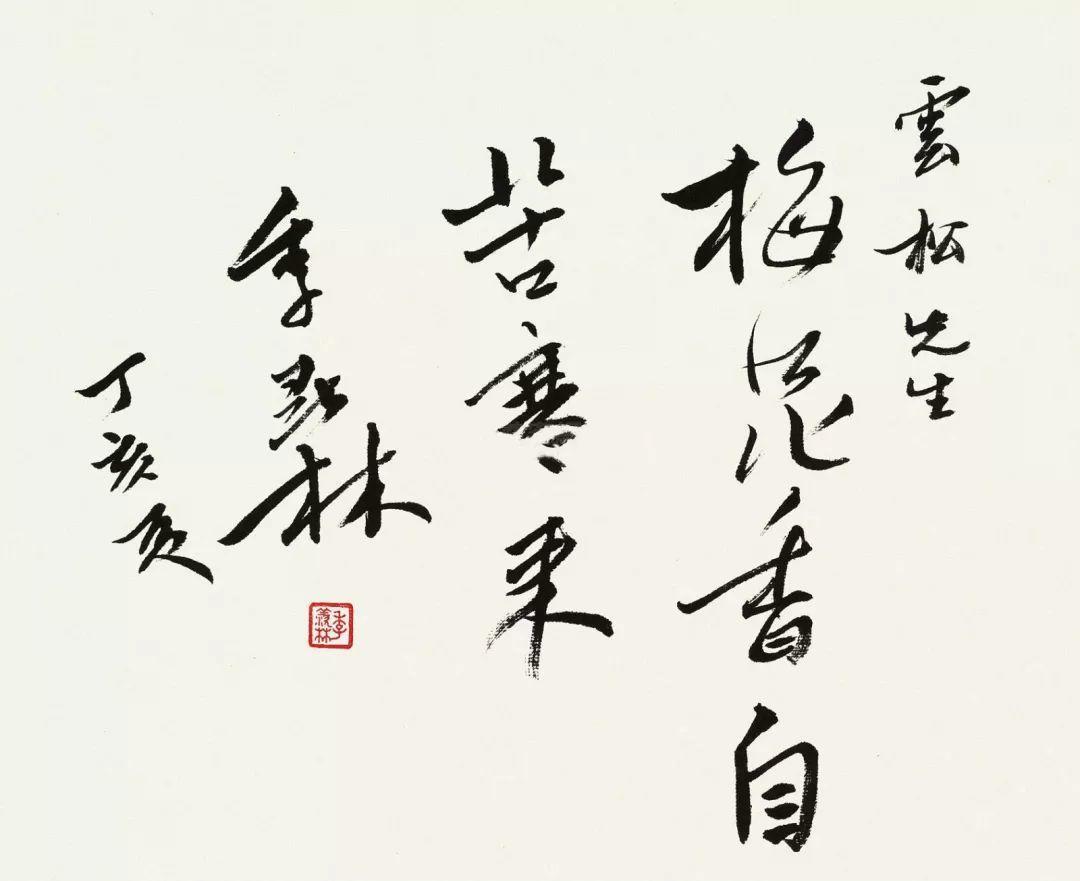 雲松先生
梅花香自
苦寒来
季羡林
丁亥夏
季羡林